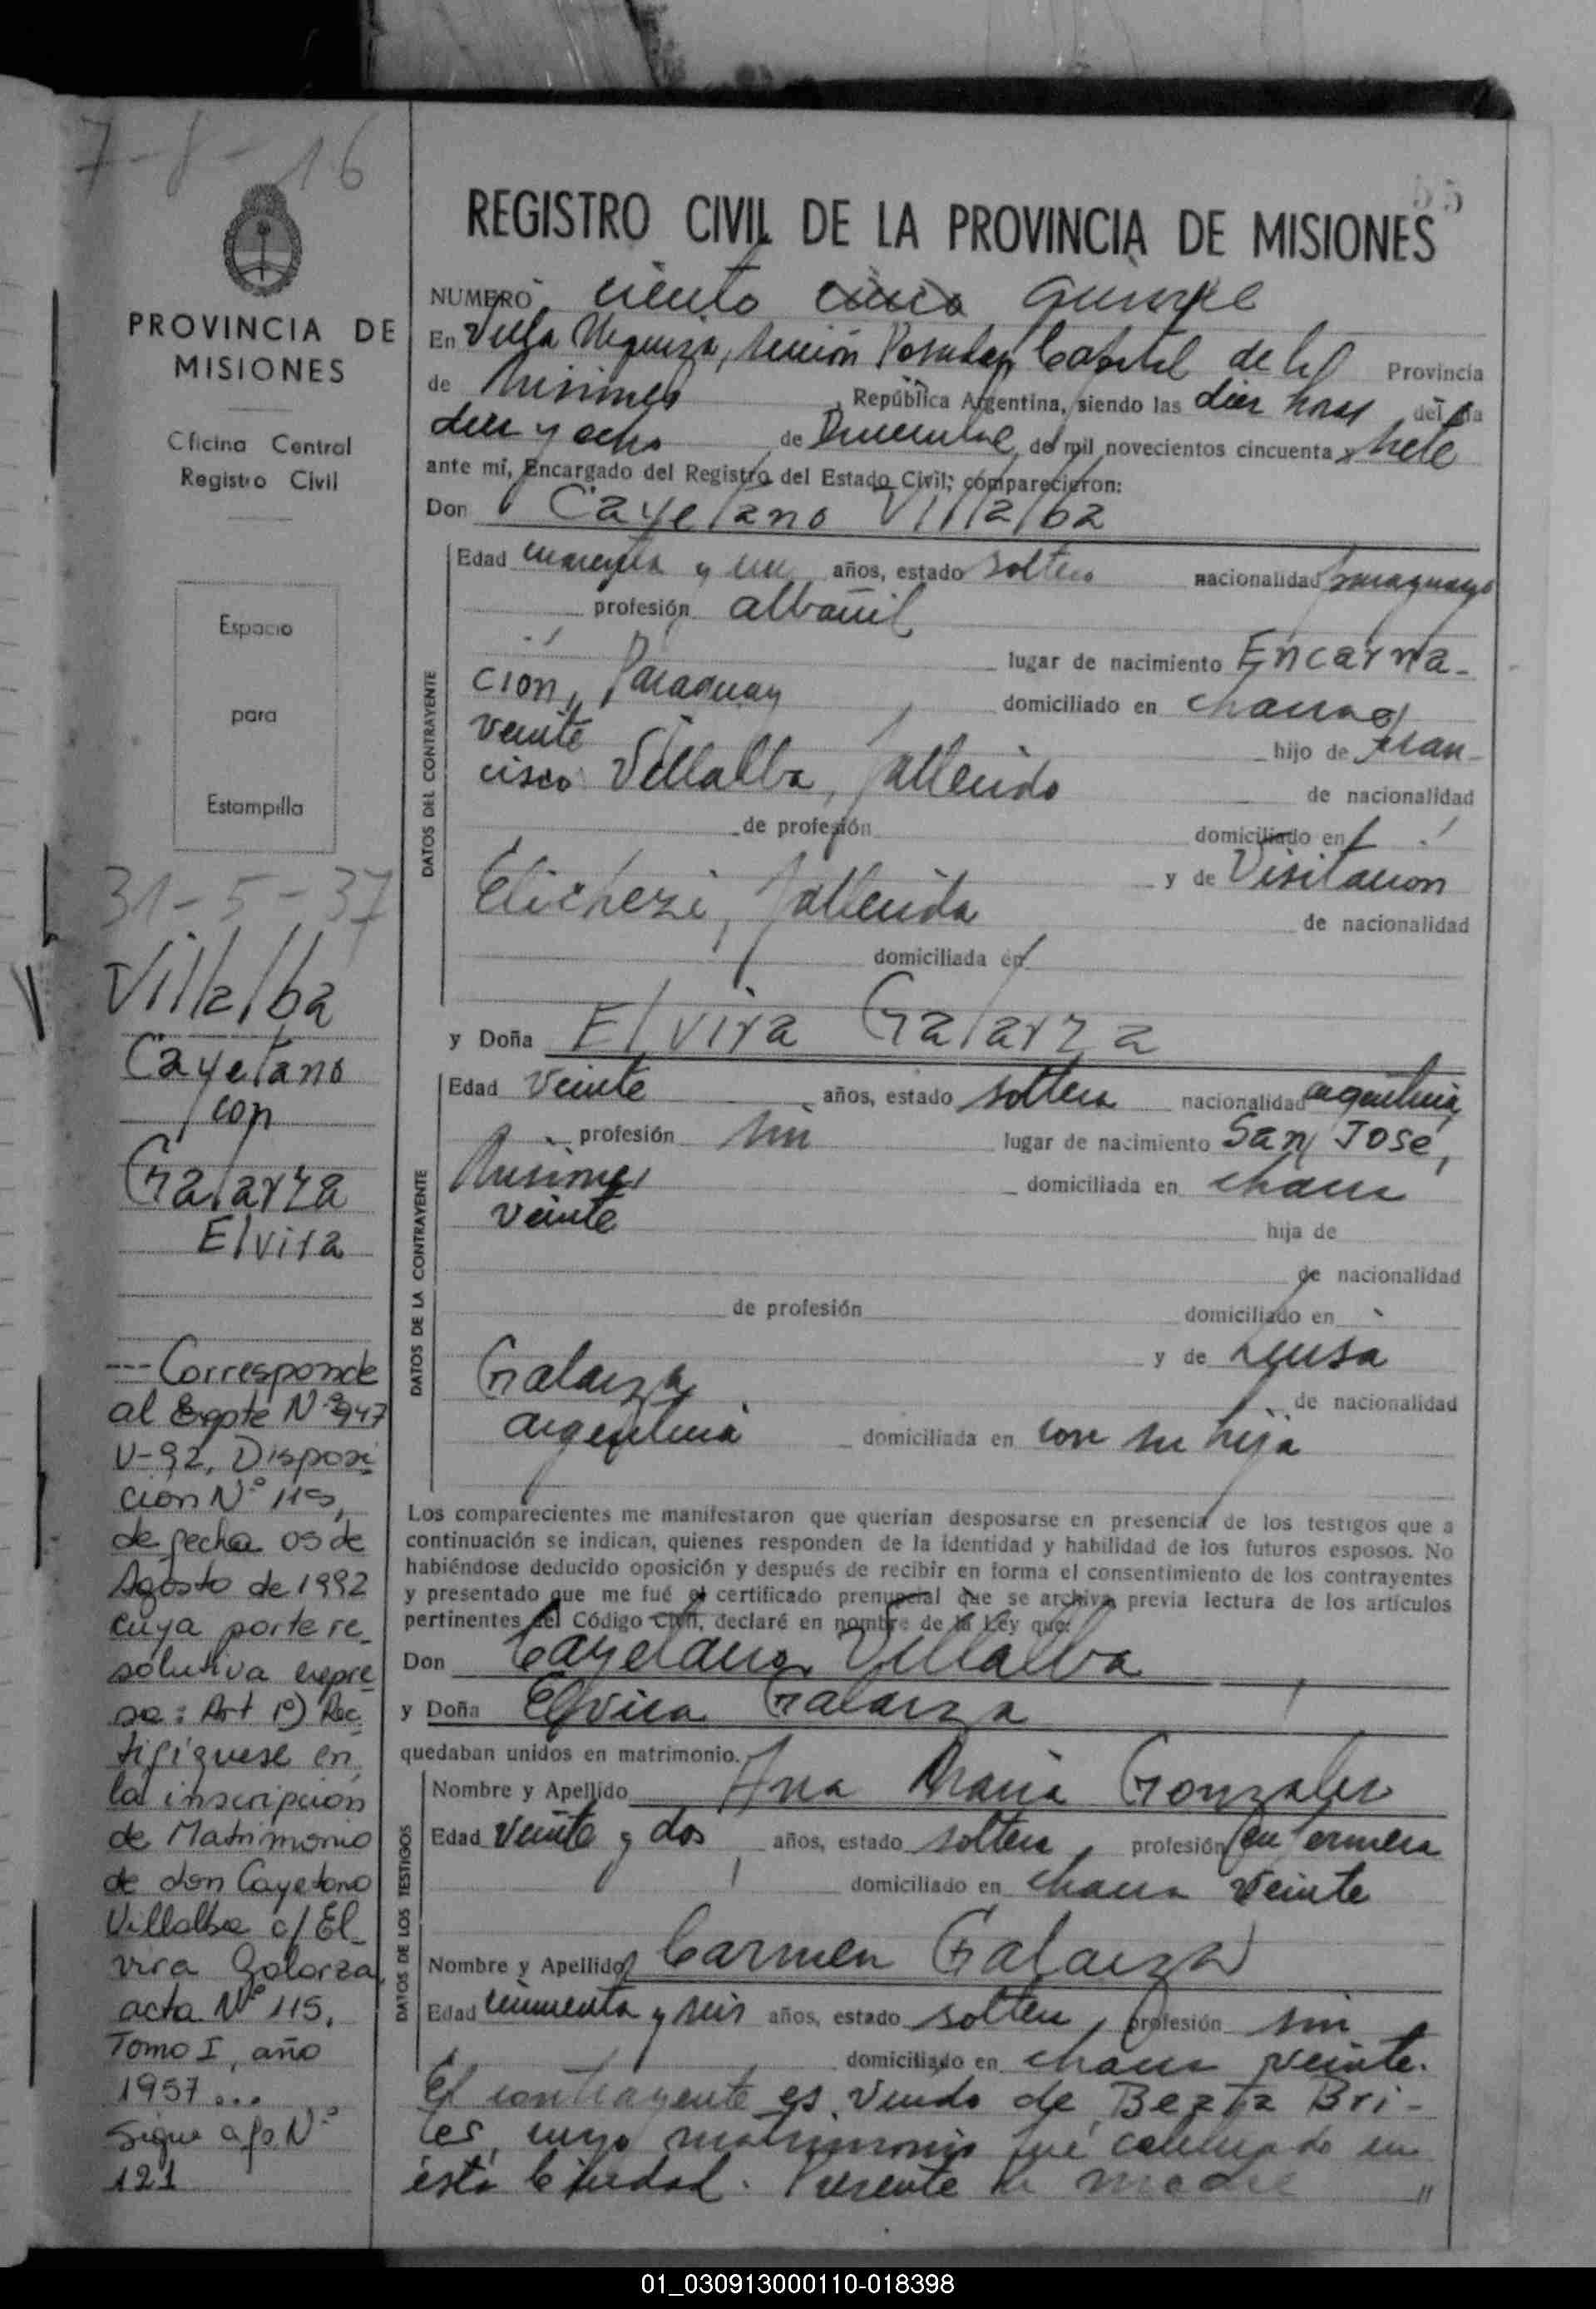 7-8-16
55
REGISTRO CIVIL DE LA PROVINCIA DE MISIONES
PROVINCIA DE
MISIONES
Oficina Central
Registro Civil
Espacio
para
Estampilla
31-5-37
Villalba
Cayetano
con
Galarza
Elvira
--- Corresponde
al Expte Nº 3947
V-92, Disposi
cion Nº 119,
de fecha 05 de
Agosto de 1992
cuya parte re_
solutiva expre
sa: Art 1º) Rec
tifíquese en
la inscripción
de Matrimonio
de don Cayetano
Villalba c/ El_
vira Galarza,
acta Nº 115,
Tomo I, año
1957...
Sigue a fo Nº
121
NUMERO ciento cinco quince
En Villa Urquiza, sección Posadas Capital de la Provincia
de Misiones, República Argentina, siendo las diez horas del día
diez y ocho de Diciembre de mil novecientos cincuenta y siete
ante mí, Encargado del Registro del Estado Civil; comparecieron:
Don Cayetano Villalba
DATOS DEL CONTRAYENTE
Edad cuarenta y un años, estado soltero nacionalidad paraguayo
profesión albañil
lugar de nacimiento Encarna-
ción, Paraguay domiciliado en chacra
veinte hijo de Fran-
cisco Villalba, fallecido de nacionalidad
de profesión domiciliado en
y de Visitación
fallecida de nacionalidad
domiciliada en
y Doña Elvira Galarza
DATOS DE LA CONTRAYENTE
Edad veinte años, estado soltera nacionalidad argentina,
profesión sin lugar de nacimiento San José,
Misiones domiciliada en chacra
veinte hija de
de nacionalidad
de profesión domiciliado en
y de Luisa
Galarza de nacionalidad
argentina domiciliada en con su hija
Los comparecientes me manifestaron que querían desposarse en presencia de los testigos que a
continuación se indican, quienes responden de la identidad y habilidad de los futuros esposos. No
habiéndose deducido oposición y después de recibir en forma el consentimiento de los contrayentes
y presentado que me fué el certificado prenupcial que se archiva, previa lectura de los artículos
pertinentes del Código Civil, declaré en nombre de la Ley que:
Don Cayetano Villalba
y Doña Elvira Galarza
quedaban unidos en matrimonio.
DATOS DE LOS TESTIGOS
Nombre y Apellido Ana María Gonzalez
Edad veinte y dos años, estado soltera, profesión enfermera
domiciliado en chacra veinte
Nombre y Apellido Carmen Galarza
Edad cincuenta y seis años, estado soltera, profesión sin
domiciliado en chacra veinte.
El contrayente es viudo de Beata Bri-
tes, cuyo matrimonio fué celebrado en
esta Ciudad. Presente la madre "
01_030913000110-018398